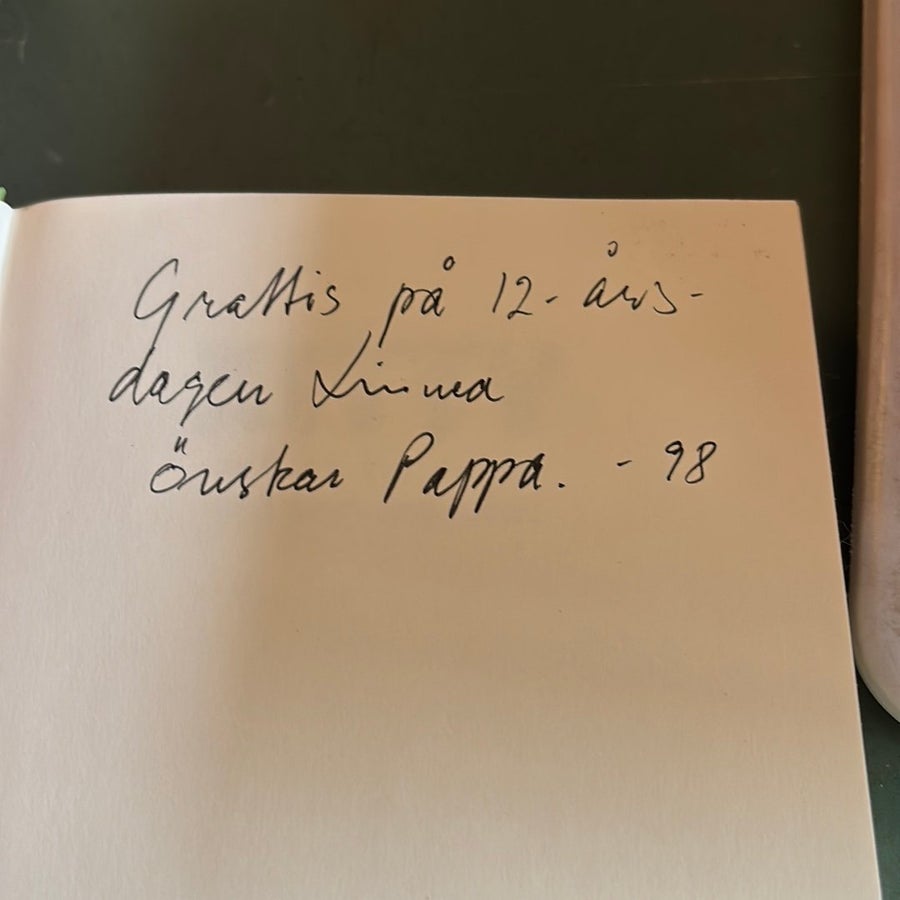 Grattis på 12-års-
dagen Linnea
önskar Pappa. -98